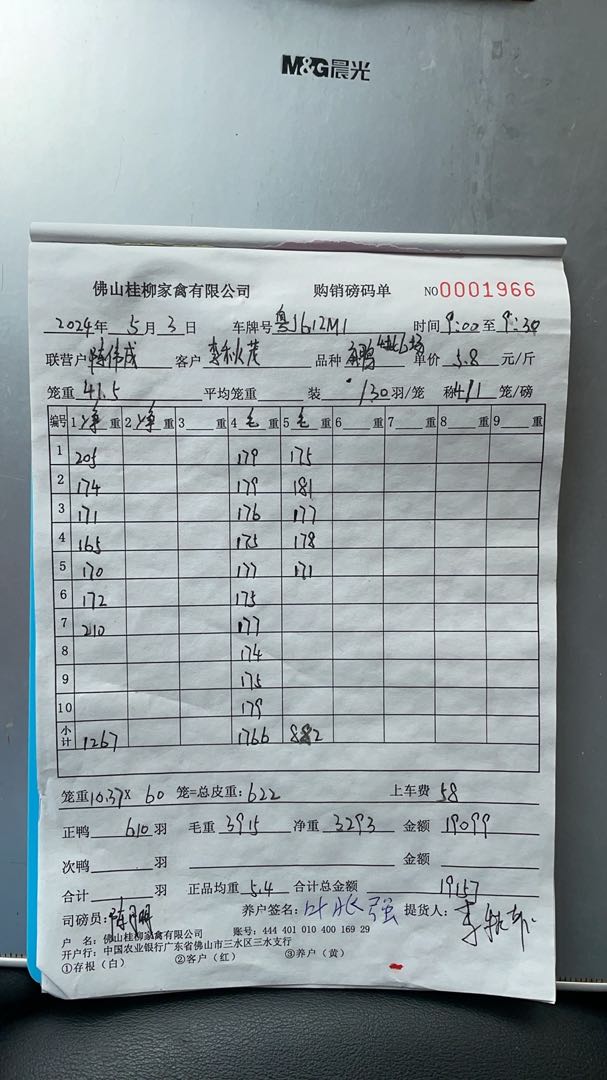 M&G晨光
佛山桂柳家禽有限公司 购销磅码单 NO0001966
2024年 5月 3日 车牌号 粤J612M1 时间 9:00 至 9:30
联营户 陈伟成 客户 李秋茂 品种 单价 5.8 元/斤
笼重 41.5 平均笼重 装 130 羽/笼 称 4/1 笼/磅
编号 1 净 重 2 净 重 3 重 4 毛 重 5 毛 重 6 重 7 重 8 重 9 重
1 205 179 175
2 174 179 181
3 171 176 177
4 165 175 178
5 170 177 171
6 172 175
7 210 177
8 174
9 175
10 179
小计 1267 1766 882
笼重 10.37 X 60 笼=总皮重: 622 上车费 58
正鸭 610 羽 毛重 3915 净重 3293 金额 19099
次鸭 羽 金额
合计 羽 正品均重 5.4 合计总金额 19157
司磅员: 养户签名: 叶胀强 提货人:
户 名: 佛山桂柳家禽有限公司 账号: 444 401 010 400 169 29
开户行: 中国农业银行广东省佛山市三水区三水支行
①存根（白） ②客户（红） ③养户（黄）